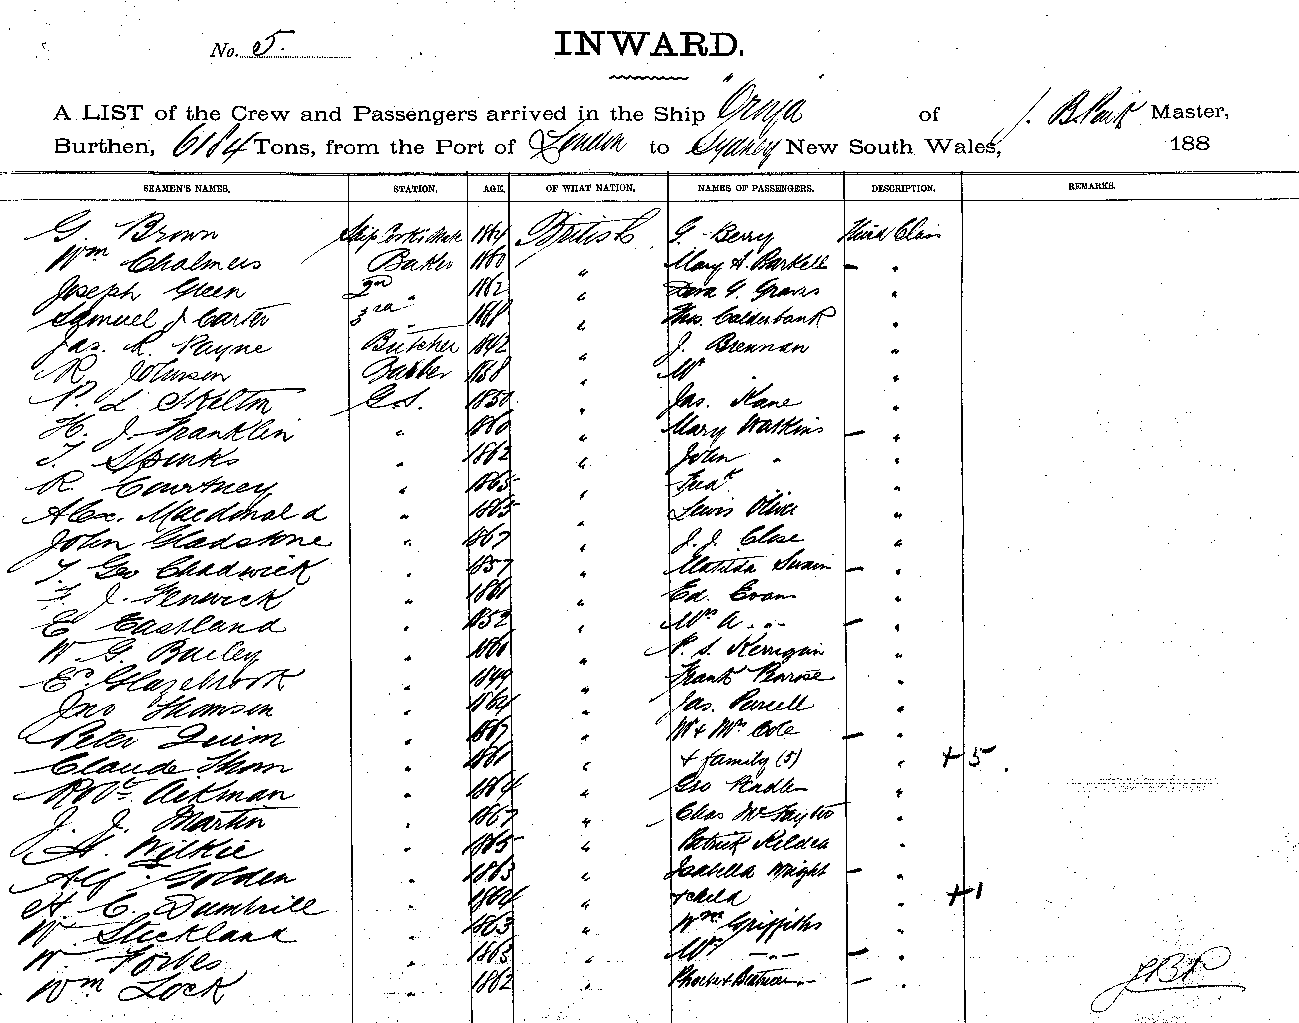 No. 5.
INWARD.
A LIST of the Crew and Passengers arrived in the Ship "Oroya" of J. B. Park Master,
Burthen, 6184 Tons, from the Port of London to Sydney New South Wales, 188
SEAMEN'S NAMES. STATION. AGE. OF WHAT NATION. NAMES OF PASSENGERS. DESCRIPTION. REMARKS.
G. Brown Ship Mate 1864 British G. Berry Third Class
Wm Chalmers Baker 1860 " Mary A. Barkell - "
Joseph Green 2nd " 1862 " G. Graves "
Samuel J Carter 3rd " 1868 " Thos. Calderbank "
Jas. R. Payne Butcher 1842 " J. Brennan "
R. Johnson Barber 1858 " "
P. L. Skelton G.S. 1850 " Jas. Kane "
H. J. Franklin " 1860 " Mary Watkins - "
T. Spinks " 1862 " John " "
R. Courtney " 1865 " Fredk "
Alex. Macdonald " 1865 " Lewis Olive "
John Gladstone " 1867 " J. J. Close "
T. Geo Chadwick " 1857 " Matilda Swain - "
F. J. Fenwick " 1861 " Ed. Evans "
E. Eastland " 1852 " Mrs A. " - "
W. G. Bailey " 1861 " P. S. Kerrigan "
Ed. Glazebrook " 1849 " Frank Penrose "
Jno Thomson " 1864 " Jas. Purcell "
Peter Quinn " 1867 " Mr & Mrs Cole - "
Claude Thorn " 1861 " & family (5) " +5.
Robt. Aitman " 1864 " Geo "
J. J. Martin " 1867 " Chas "
A. Wilkie " 1865 " Patrick Kildea "
Alf. Golden " 1863 " Isabella Wright - "
H. C. Dumbrill " 1864 " & child " +1
W. Stickland " 1863 " Wm. Griffiths "
W. Forbes " 1863 " Mrs " - "
Wm Lock " 1862 " Phoebe & Beatrice " - "
JBP